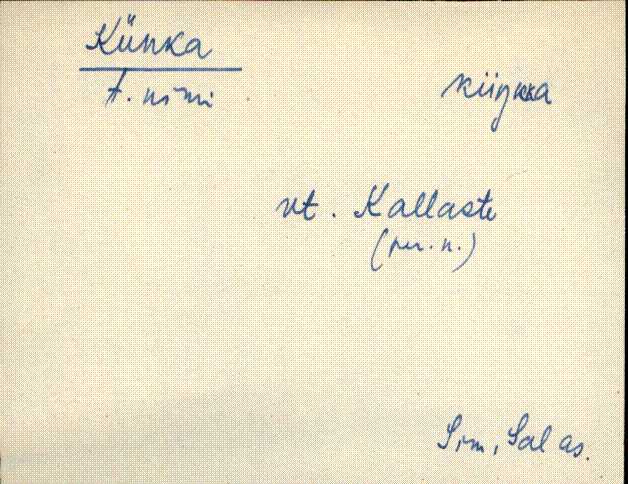 Künka
t. nimi
küŋkka
vt. Kallaste
(per. n.)
Sim, Sal as.